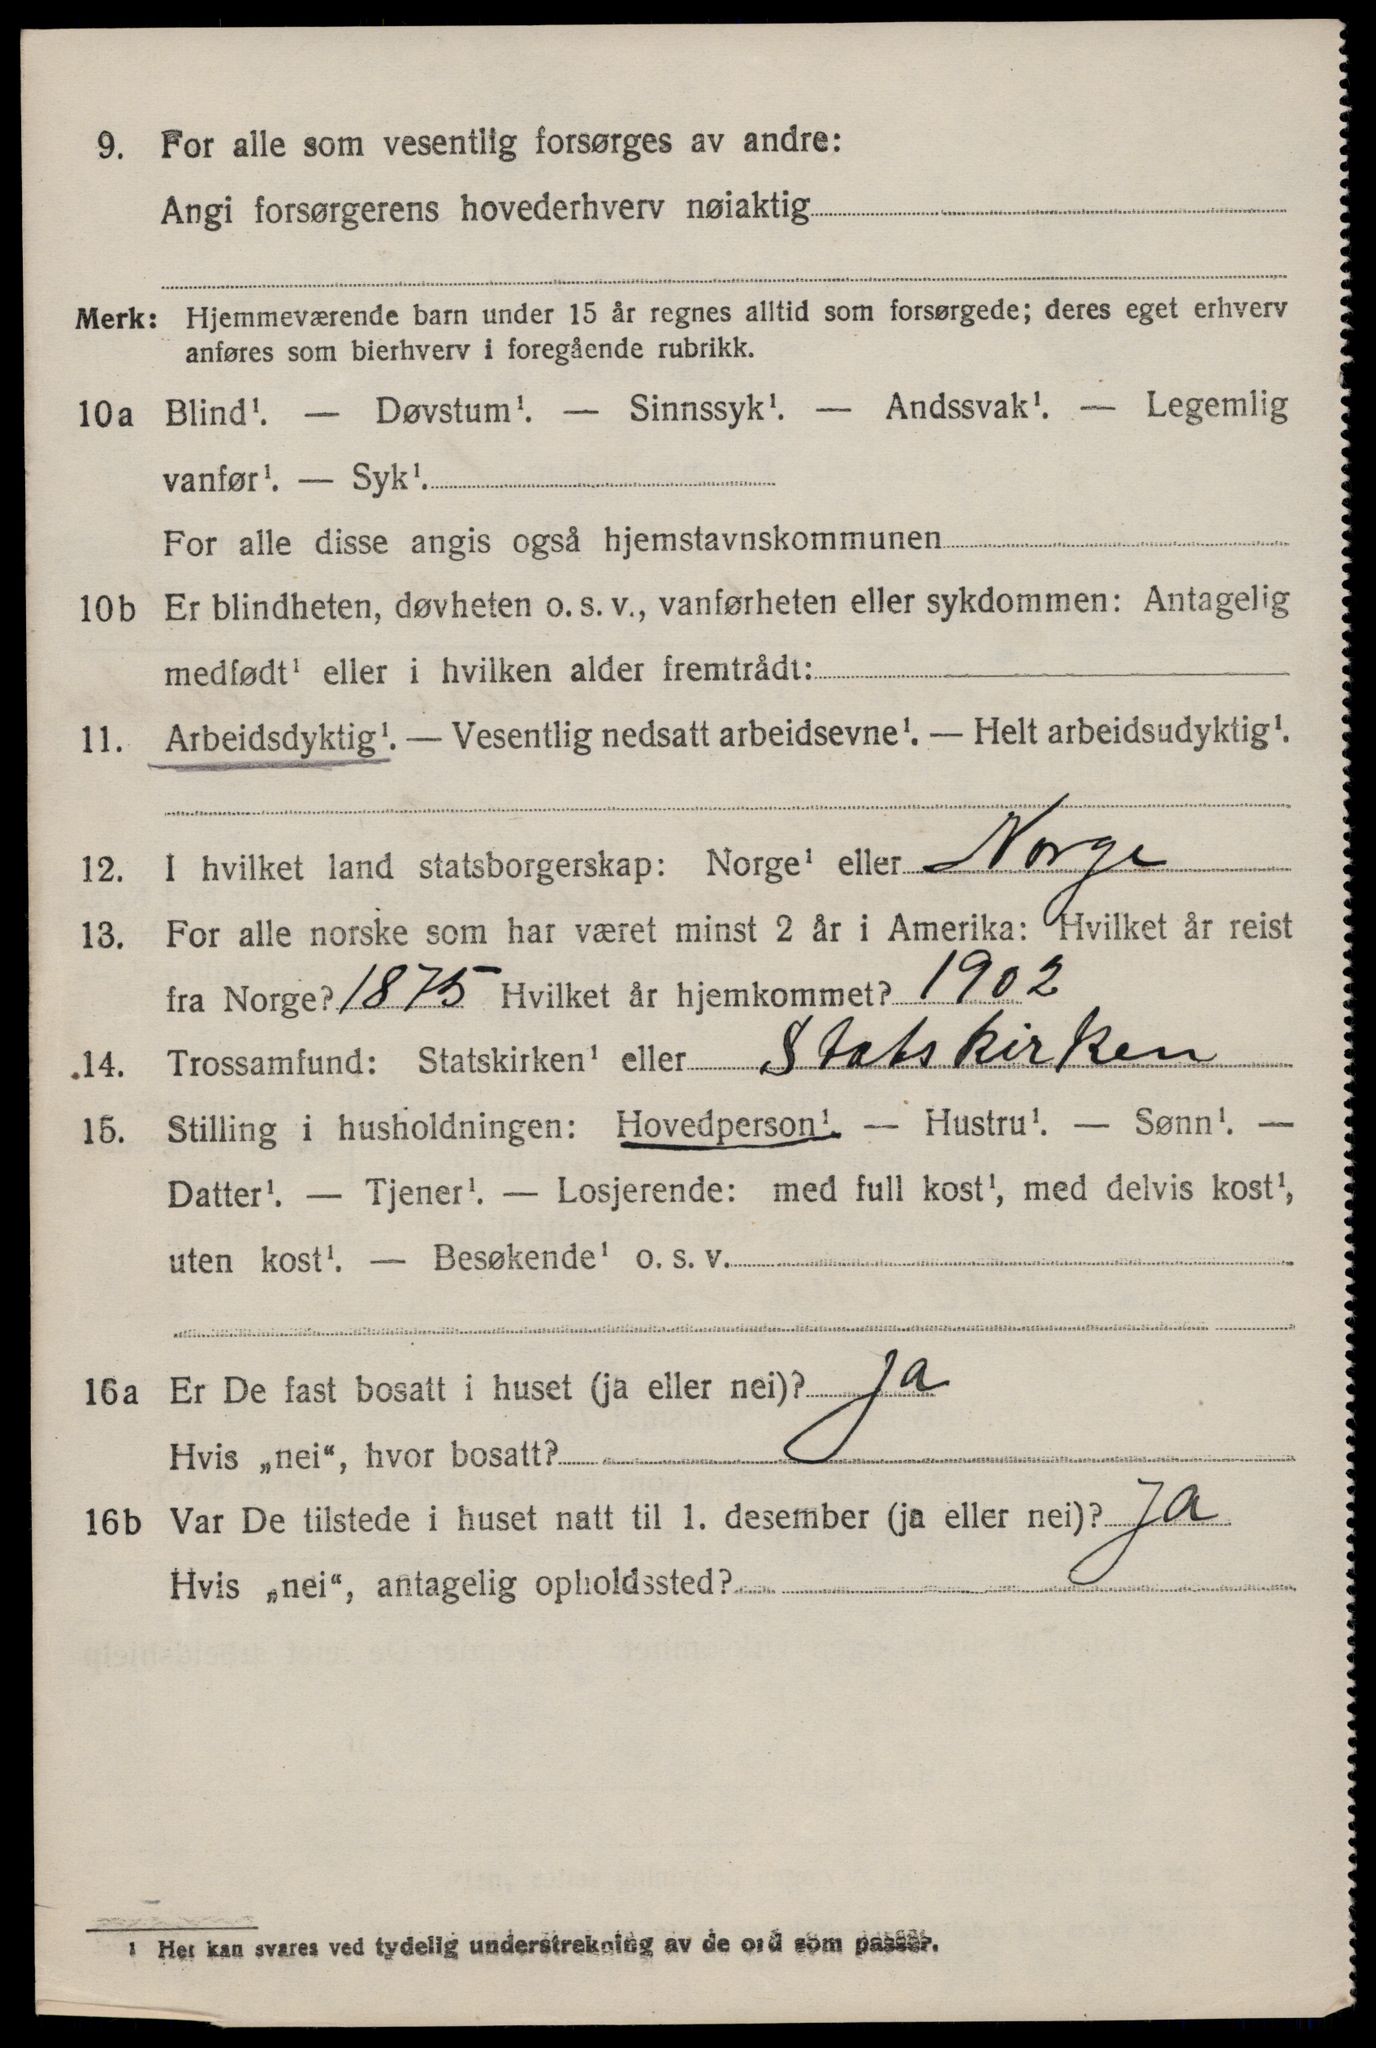 9. For alle som vesentlig forsørges av andre:
Angi forsørgerens hovederhverv nøiaktig
Merk: Hjemmeværende barn under 15 år regnes alltid som forsørgede; deres eget erhverv
anføres som bierhverv i foregående rubrikk.
10a Blind¹. — Døvstum¹. — Sinnssyk¹. — Andssvak¹. — Legemlig
vanfør¹. — Syk¹.
For alle disse angis også hjemstavnskommunen
10b Er blindheten, døvheten o. s. v., vanførheten eller sykdommen: Antagelig
medfødt¹ eller i hvilken alder fremtrådt:
11. Arbeidsdyktig¹. — Vesentlig nedsatt arbeidsevne¹. — Helt arbeidsudyktig¹.
12. I hvilket land statsborgerskap: Norge¹ eller Norge
13. For alle norske som har været minst 2 år i Amerika: Hvilket år reist
fra Norge? 1875 Hvilket år hjemkommet? 1902
14. Trossamfund: Statskirken¹ eller Statskirken
15. Stilling i husholdningen: Hovedperson¹. — Hustru¹. — Sønn¹. —
Datter¹. — Tjener¹. — Losjerende: med full kost¹, med delvis kost¹,
uten kost¹. — Besøkende¹ o. s. v.
16a Er De fast bosatt i huset (ja eller nei)? Ja
Hvis „nei“, hvor bosatt?
16b Var De tilstede i huset natt til 1. desember (ja eller nei)? Ja
Hvis „nei“, antagelig opholdssted?
1 Her kan svares ved tydelig understrekning av de ord som passer.